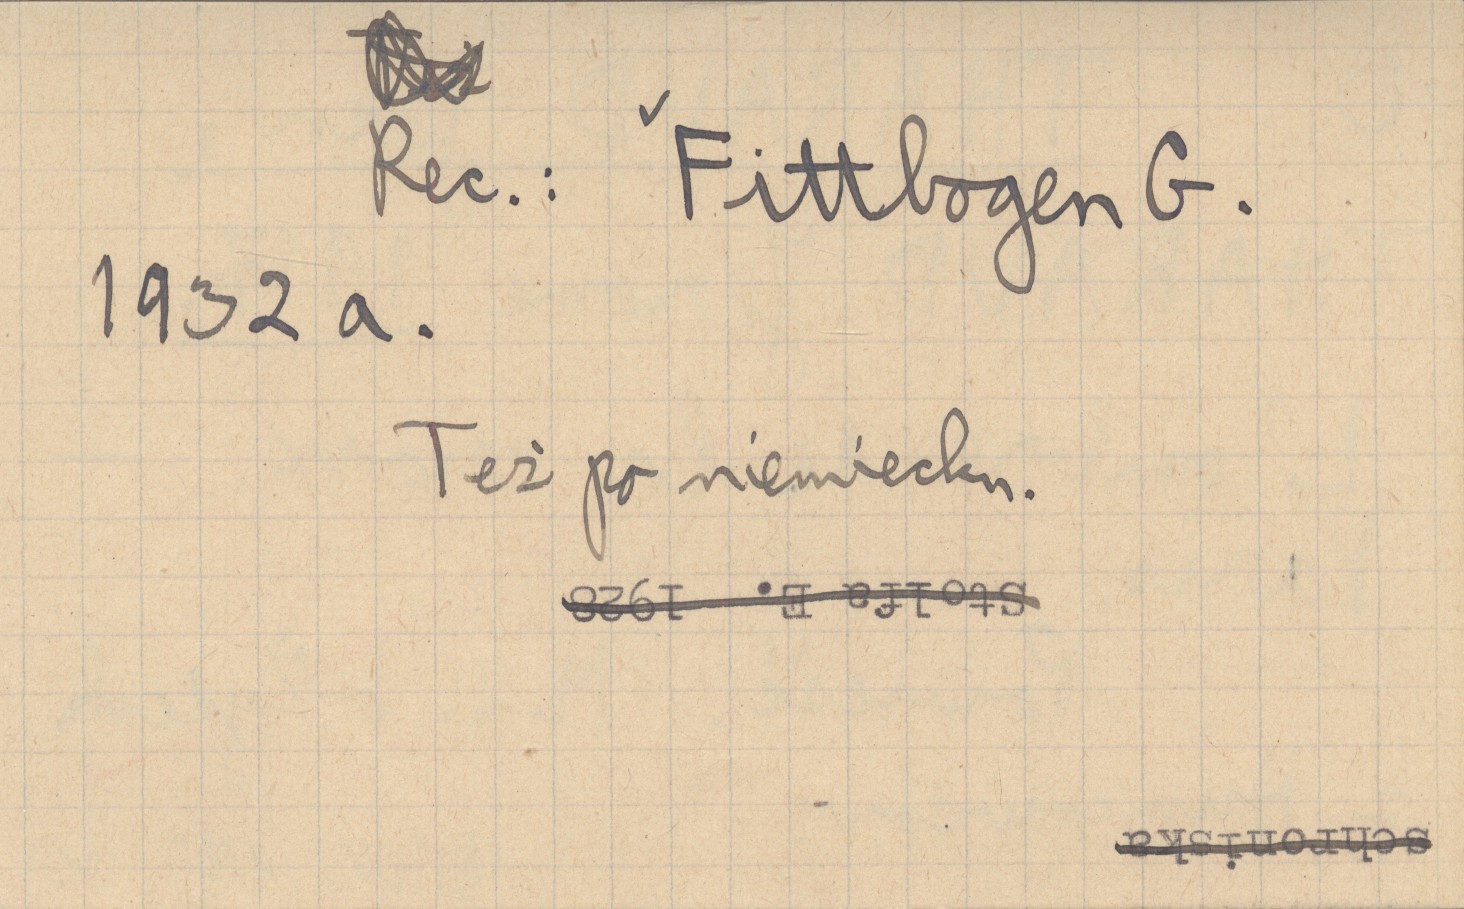 Rec.: Fittbogen G.
1932 a.
Też po niemiecku.
Stolfa E. 1928
schroniska